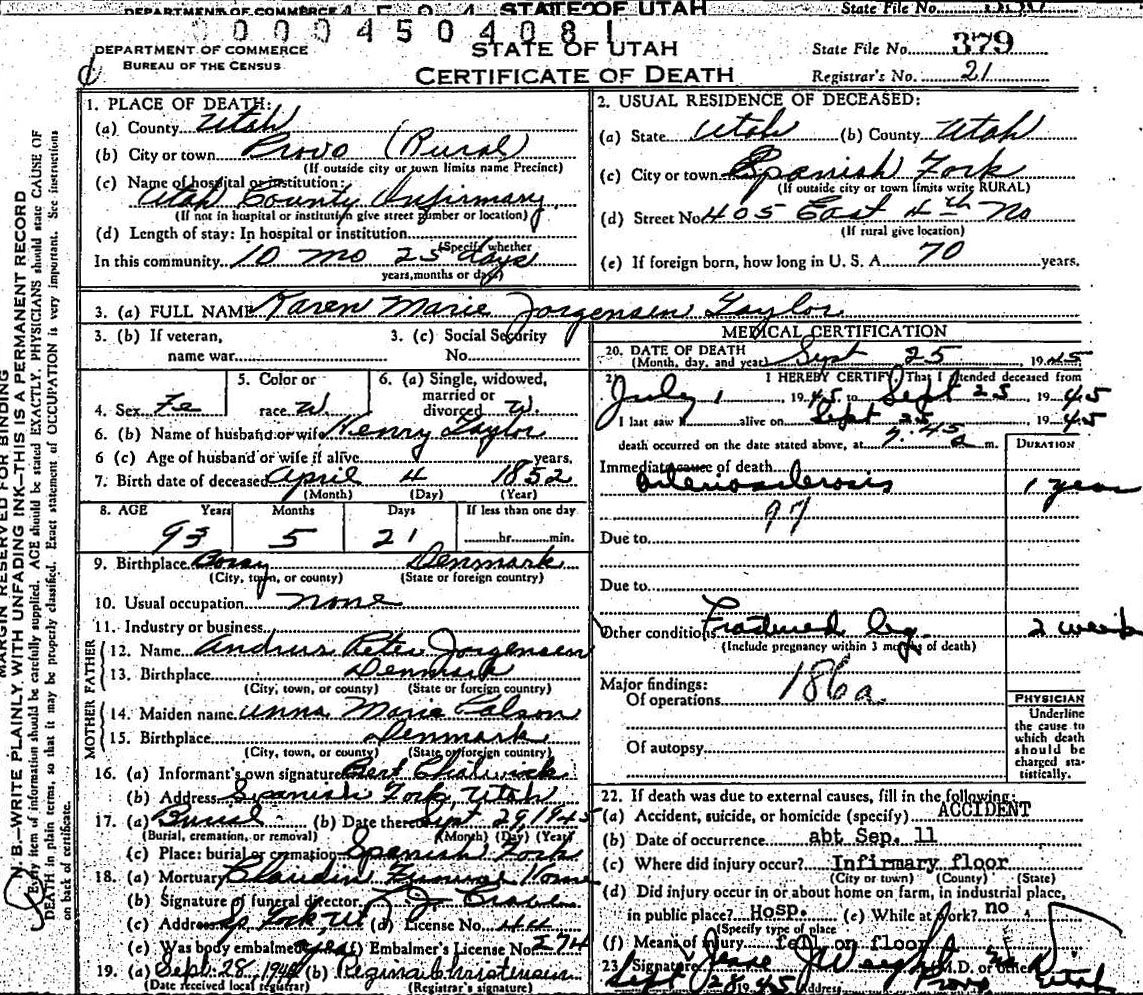 DEPARTMENT OF COMMERCE STATE OF UTAH State File No.
0000450408 1
DEPARTMENT OF COMMERCE
BUREAU OF THE CENSUS
STATE OF UTAH
CERTIFICATE OF DEATH
State File No. 379
Registrar's No. 21
MARGIN RESERVED FOR BINDING
N. B.—WRITE PLAINLY WITH UNFADING INK—THIS IS A PERMANENT RECORD
Every item of information should be carefully supplied. AGE should be stated EXACTLY. PHYSICIANS should state CAUSE OF
DEATH in plain terms, so that it may be properly classified. Exact statement of OCCUPATION is very important. See instructions
on back of certificate.
1. PLACE OF DEATH:
(a) County Utah
(b) City or town Provo (Rural)
(If outside city or town limits name Precinct)
(c) Name of hospital or institution:
Utah County Infirmary
(If not in hospital or institution give street number or location)
(d) Length of stay: In hospital or institution
(Specify whether
In this community 10 mo 25 days
years, months or days)
2. USUAL RESIDENCE OF DECEASED:
(a) State Utah (b) County Utah
(c) City or town Spanish Fork
(If outside city or town limits write RURAL)
(d) Street No. 405 East 4th No
(If rural give location)
(e) If foreign born, how long in U. S. A. 70 years.
3. (a) FULL NAME Karen Marie Jorgensen Taylor
3. (b) If veteran,
name war
3. (c) Social Security
No.
4. Sex Fe
5. Color or
race W.
6. (a) Single, widowed,
married or
divorced W.
6. (b) Name of husband or wife Henry Taylor
6 (c) Age of husband or wife if alive years,
7. Birth date of deceased April 4 1852
(Month) (Day) (Year)
8. AGE Years Months Days If less than one day
93 5 21 hr. min.
9. Birthplace Denmark
(City, town, or county) (State or foreign country)
10. Usual occupation none
11. Industry or business
FATHER
12. Name Andrus Peter Jorgensen
13. Birthplace Denmark
(City, town, or county) (State or foreign country)
MOTHER
14. Maiden name Anna Marie
15. Birthplace Denmark
(City, town, or county) (State or foreign country)
16. (a) Informant's own signature Bert Chadwick
(b) Address Spanish Fork, Utah
17. (a) Burial (b) Date thereof Sept 29, 1945
(Burial, cremation, or removal) (Month) (Day) (Year)
(c) Place: burial or cremation Spanish Fork
18. (a) Mortuary Claudin Funeral Home
(b) Signature of funeral director
(c) Address Sp Fork, Ut (d) License No. 44
(e) Was body embalmed yes (f) Embalmer's License No. 274
19. (a) Sept. 28, 1945 (b) Regina C. Christensen
(Date received local registrar) (Registrar's signature)
MEDICAL CERTIFICATION
20. DATE OF DEATH
(Month, day, and year) Sept 25, 1945
21. I HEREBY CERTIFY That I attended deceased from
July 1, 1945 to Sept 25, 1945
I last saw h alive on Sept 25, 1945
death occurred on the date stated above, at :45 a m.
DURATION
Immediate cause of death
Arteriosclerosis 1 year
97
Due to
Due to
Other conditions Fractured leg 2 week
(Include pregnancy within 3 months of death)
Major findings: 186a
Of operations
Of autopsy
PHYSICIAN
Underline
the cause to
which death
should be
charged sta-
tistically.
22. If death was due to external causes, fill in the following:
(a) Accident, suicide, or homicide (specify) ACCIDENT
(b) Date of occurrence abt Sep. 11
(c) Where did injury occur? Infirmary floor
(City or town) (County) (State)
(d) Did injury occur in or about home on farm, in industrial place,
in public place? Hosp. (e) While at work? no
(Specify type of place
(f) Means of injury fell on floor
23. Signature Jesse J Weight M.D. or other
Sept 28 1945 Address Provo Utah